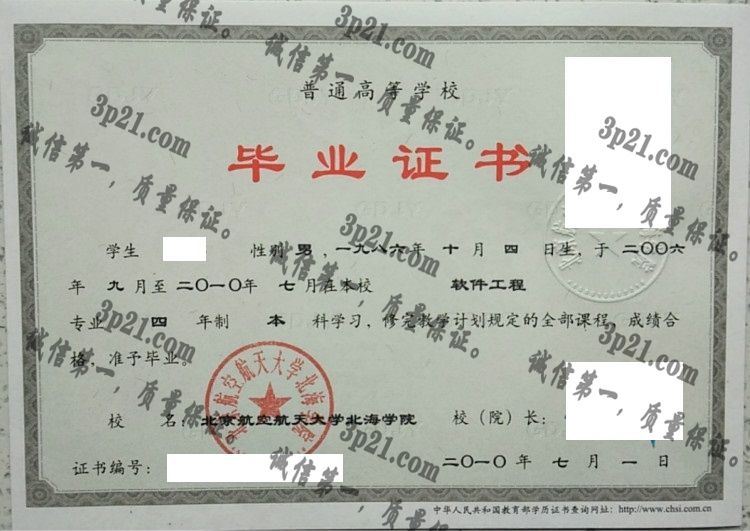 普通高等学校
毕业证书
学生 性别 男 , 一九八六年 十 月 四 日生, 于 二〇〇六
年 九 月至 二〇一〇年 七 月在本校 软件工程
专业 四 年制 本 科学习, 修完教学计划规定的全部课程, 成绩合
格, 准予毕业。
校 名: 北京航空航天大学北海学院 校(院)长:
证书编号: 二〇一〇 年 七 月 一 日
中华人民共和国教育部学历证书查询网址: http://www.chsi.com.cn
北京航空航天大学北海学院
3p21.com
诚信第一,质量保证。
3p21.com
诚信第一,质量保证。
3p21.com
诚信第一,质量保证。
3p21.com
诚信第一,质量保证。
3p21.com
诚信第一,质量保证。
3p21.com
诚信第一,质量保证。
3p21.com
诚信第一,质量保证。